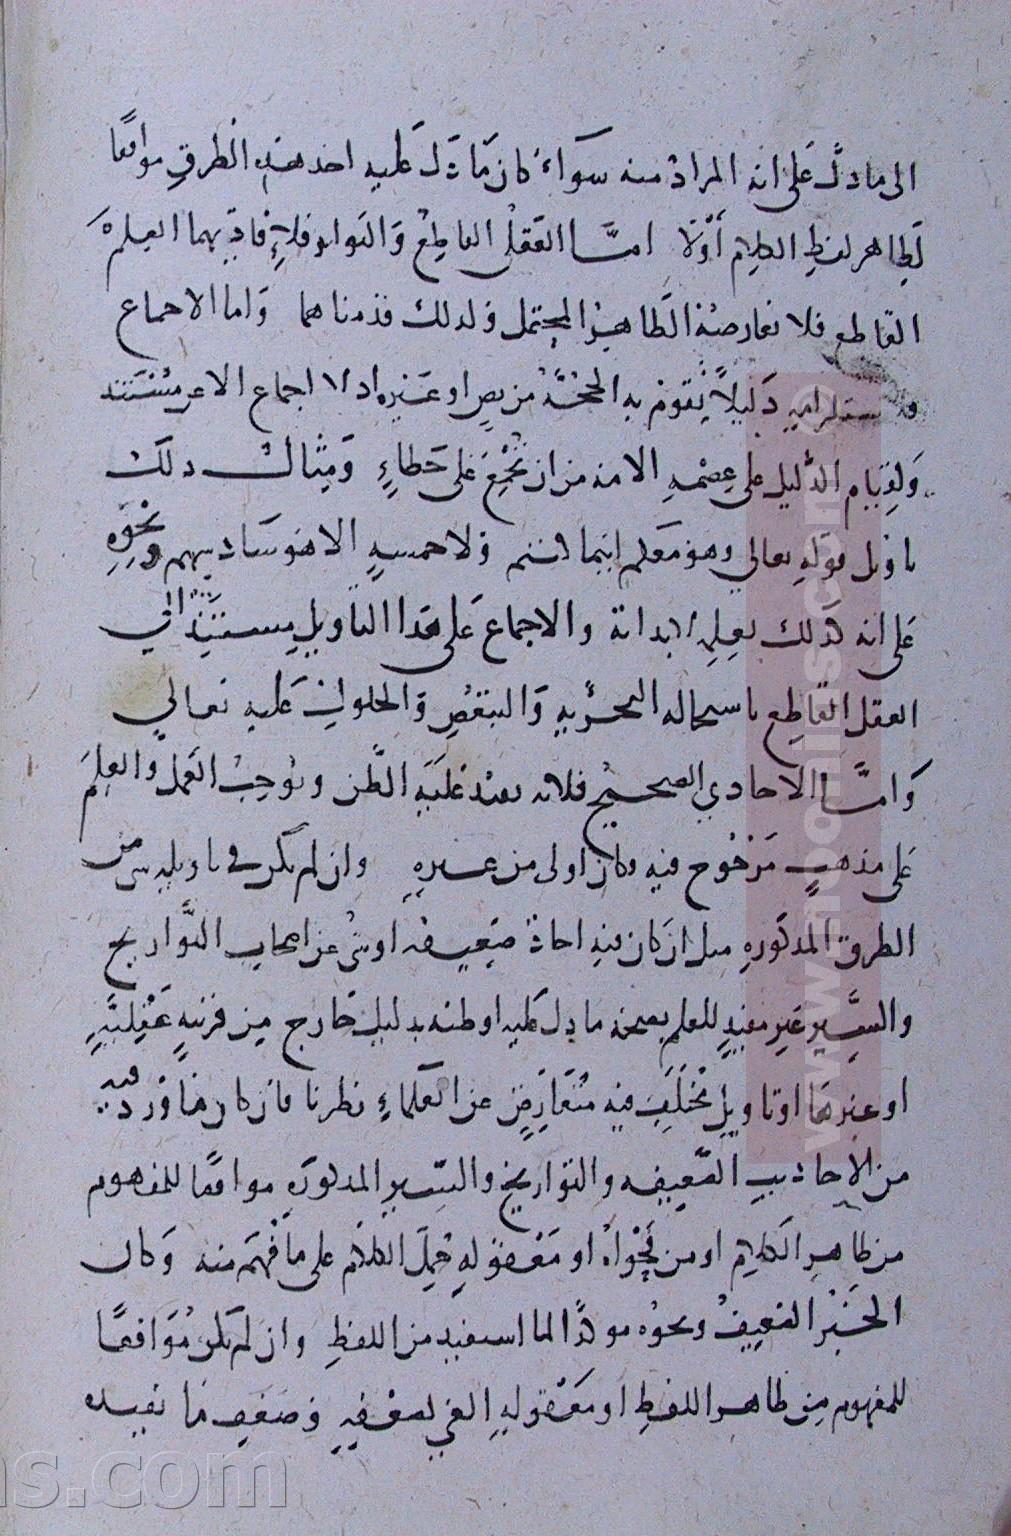 الى ما دل على انه المراد منه سواء كان ما دل عليه احد هذه الطرق موافقا
لظاهر لفظ الكلام أولا اما العقل القاطع والتواتر فلإفادتهما العلم
القاطع فلا تعارضه الظاهر المحتمل ولذلك قدمناهما واما الاجماع
دليلا يقوم به الحجة من نص او غيره اذ لا اجماع الا عن مستند
ولقيام الدليل على عصمة الامة من ان تجمع على خطاء ومثال ذلك
تاويل قوله تعالى وهو معكم اينما كنتم ولا خمسة الا هو سادسهم ونحوه
على انه كذلك بعلمه لا بذاته والاجماع على هذا التاويل مستند الى
العقل القاطع باستحاله التجزيه والتبعض والحلول عليه تعالى
واما الاحاديث الصحيح فلانه يفيد غلبه الظن ويوجب العمل والعلم
على مذهب مرجوح فيه وكان اولى من غيره وان لم يكن في تاويله شي من
الطرق المذكوره مثل ان كان فيه احاد ضعيفه او شي عن اصحاب التواريخ
والسير غير مفيد للعلم بصحه ما دل عليه او ظنه بدليل خارج من قرينة عقليه
او غيرها او تاويل مختلف فيه متعارض عن العلماء نظرنا فان كان ما ورد فيه
من الاحاديث الضعيفه والتواريخ والسير المذكوره موافقا للمفهوم
من ظاهر الكلام او من فحواه او معقوله حمل الكلام على ما فهم منه وكان
الخبر الضعيف ونحوه موكدا لما استفيد من اللفظ وان لم يكن موافقا
للمفهوم من ظاهر اللفظ او معقوله الغي لضعفه وضعف ما يفيده